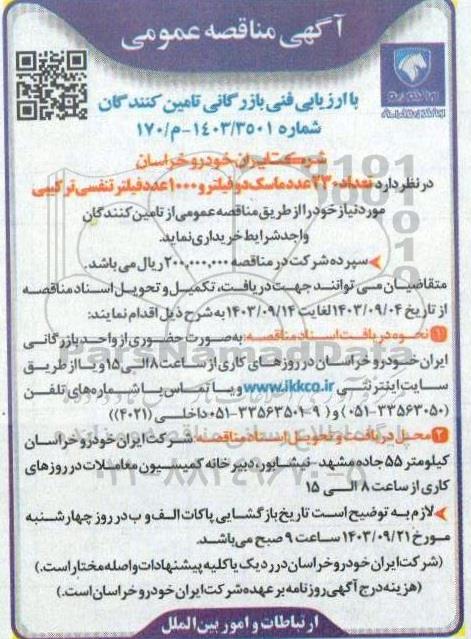 آگهی مناقصه عمومی
ایران خودرو
خراسان
با ارزیابی فنی بازرگانی تامین کنندگان
شماره ۱۴۰۳/۳۵۰۱-م/۱۷۰
شرکت ایران خودرو خراسان
در نظر دارد تعداد ۲۳۰ عدد ماسک دو فیلتر و ۱۰۰۰ عدد فیلتر تنفسی ترکیبی
مورد نیاز خود را از طریق مناقصه عمومی از تامین کنندگان
واجد شرایط خریداری نماید.
سپرده شرکت در مناقصه ۲۰۰,۰۰۰,۰۰۰ ریال می باشد.
متقاضیان می توانند جهت دریافت، تکمیل و تحویل اسناد مناقصه
از تاریخ ۱۴۰۳/۰۹/۰۴ لغایت ۱۴۰۳/۰۹/۱۴ به شرح ذیل اقدام نمایند:
۱ نحوه دریافت اسناد مناقصه: به صورت حضوری از واحد بازرگانی
ایران خودرو خراسان در روزهای کاری از ساعت ۸ الی ۱۵ و یا از طریق
سایت اینترنتی www.ikkco.ir و یا تماس با شماره های تلفن
(۰۵۱-۳۳۵۶۳۰۵۰) و (۹-۰۵۱-۳۳۵۶۳۵۰۱ داخلی (۴۰۲۱))
۲ محل دریافت و تحویل اسناد مناقصه: شرکت ایران خودرو خراسان
کیلومتر ۵۵ جاده مشهد- نیشابور، دبیرخانه کمیسیون معاملات در روزهای
کاری از ساعت ۸ الی ۱۵
لازم به توضیح است تاریخ بازگشایی پاکات الف و ب در روز چهارشنبه
مورخ ۱۴۰۳/۰۹/۲۱ ساعت ۹ صبح می باشد.
(شرکت ایران خودرو خراسان در رد یک یا کلیه پیشنهادات واصله مختار است.)
(هزینه درج آگهی روزنامه بر عهده شرکت ایران خودرو خراسان است.)
ارتباطات و امور بین الملل
ParsNamadData
۰۲۱-۸۸۳۴۹۶۷۰-۵